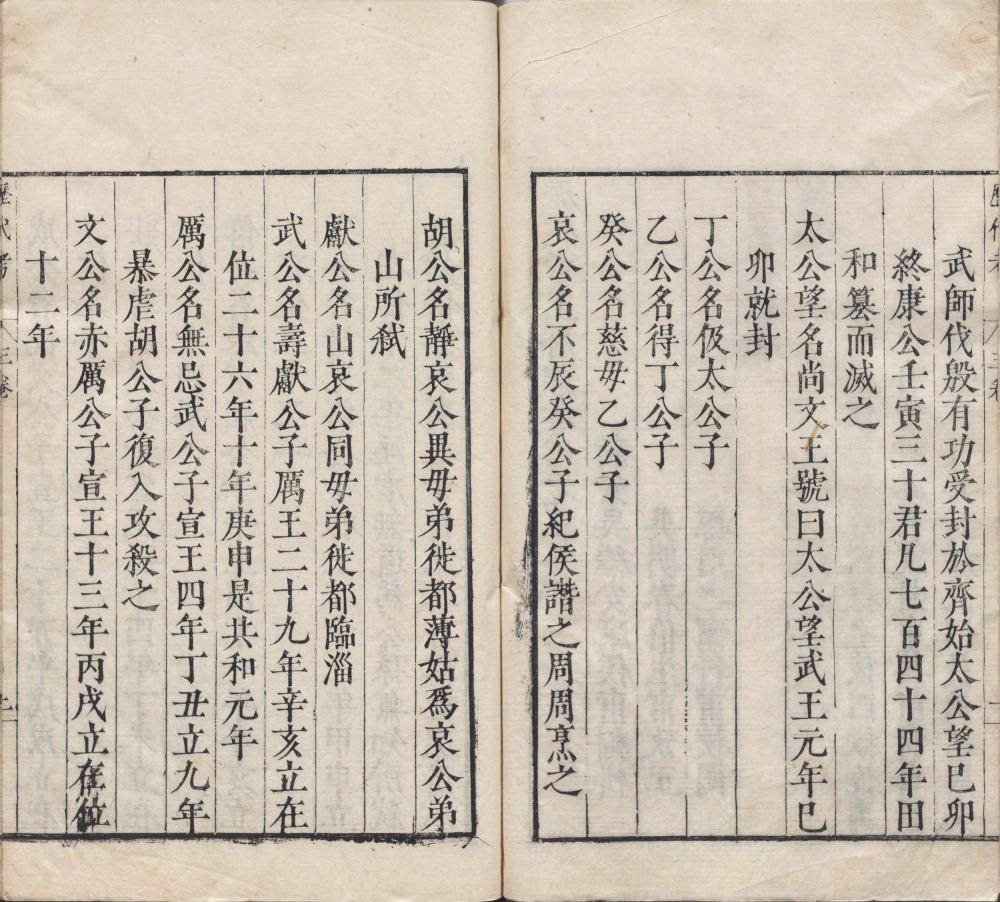 武師伐殷有功受封於齊始太公望巳卯
終康公壬寅三十君凡七百四十四年田
和篡而滅之
太公望名尚文王號曰太公望武王元年巳
卯就封
丁公名伋太公子
乙公名得丁公子
癸公名慈毋乙公子
哀公名不辰癸公子紀侯譖之周周烹之
胡公名靜哀公異毋弟徙都薄姑爲哀公弟
山所弑
獻公名山哀公同毋弟徙都臨淄
武公名壽獻公子厲王二十九年辛亥立在
位二十六年十年庚申是共和元年
厲公名無忌武公子宣王四年丁丑立九年
暴虐胡公子復入攻殺之
文公名赤厲公子宣王十三年丙戌立在位
十二年
歷代考 三卷